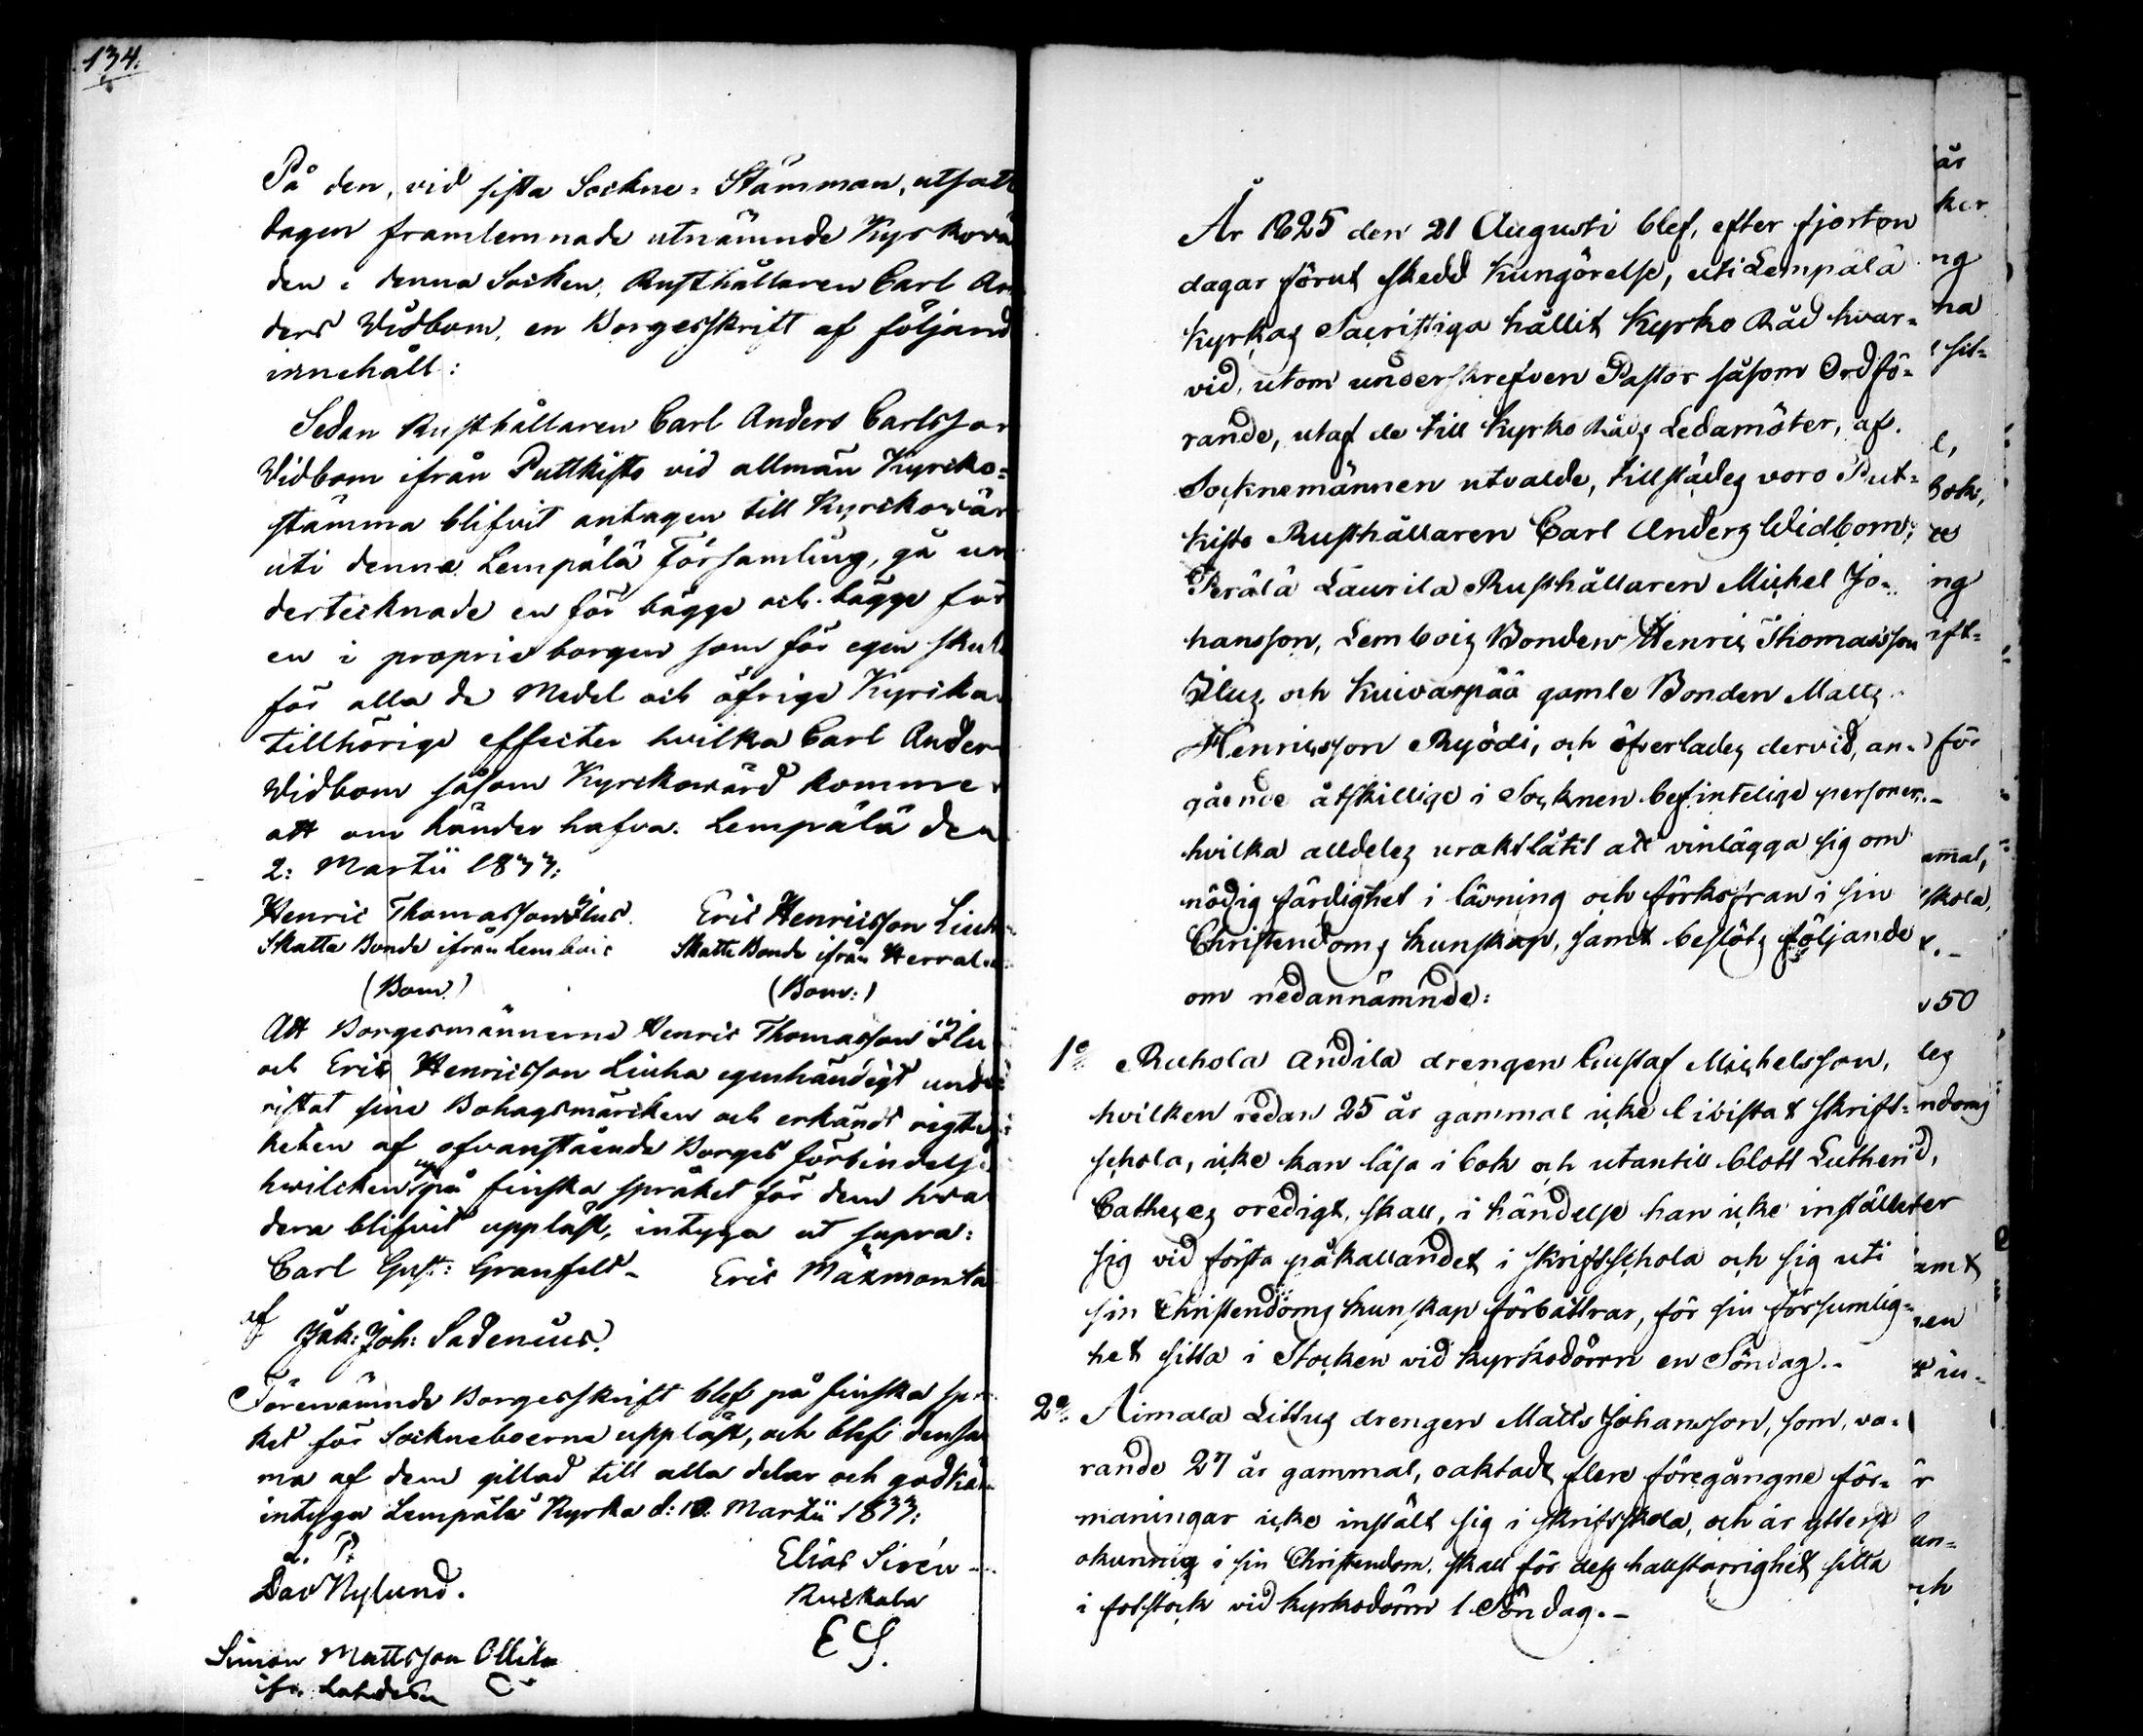 134.
På den, vid sista Sockne-Stämman, utsatt
dagen framlemnade utnämnde Kyrkovä
den i denna Socken, Rusthållaren Carl An
ders Widbom, en Borgesskrift af följand
innehåll:
Sedan Rusthållaren Carl Anders Carlsson
Widbom ifrån Puttkisto vid allmän Kyrcko-
stämma blifvit antagen till Kyrckovär
uti denna Lempälä Församling, gå un
dertecknade en för bägge och bägge för
en i proprie borgen som för egen skuld
för alla de Medel och öfrige Kyrcka
tillhörige effecter hvilka Carl Ander
Widbom såsom Kyrckovärd komme
att om händer hafva. Lempälä den
2: Martii 1833.
Henric Thomasson Ilus. Eric Henricsson Liuh
Skatte Bonde ifrån Lembois Skatte Bonde ifrån Herral
(Bom.) (Bom:)
Att Borgesmännerne Henric Thomasson Ilu
och Eric Henricsson Liuha egenhändigt und
ristat sine Bohagsmärcken och erkändt rigtig
heten af ofvanstående Borges förbindelse
hvilcken på finska språket för dem hva
dera blifvit uppläst, intyga ut supra:
Carl Gust: Granfelt- Eric Mäxmonta
af
Jak: Joh: Sadenius.
Förenämnde Borgesskrift blef på finska sp
ket för Sockneboerne uppläst, och blef densa
ma af dem gillad till alla delar och godkän
intyga Lempälä Kyrka d: 10. Martii 1833:
L. P.
Dav Nylund. Elias Sirén
Kuckala
E S.
Simon Mattsson Ollila
ifr. Lahdes
År 1825 den 21 Augusti blef, efter fjorton
dagar förut skedd Kungörelse, uti Lempälä
Kyrkas Sacristiga hållit Kyrko Råd hvar-
vid, utom underskrefven Pastor såsom Ordfö-
rande, utaf de till Kyrko Råds Ledamöter, af
Socknemännen utvalde, tillstädes voro Put-
kisto Rusthållaren Carl Anders Widbom,
Perälä Laurila Rusthållaren Michel Jo-
hansson, Lembois Bonden Henric Thomasson
Ilus, och Kuivaspää gamle Bonden Matts
Henricsson Ryödi, och öfverlades dervid, an-
gående åtskillige i Socknen befintelige personer,
hvilka alldeles uraktlåtit att vinlägga sig om
nödig färdighet i läsning och förkofran i sin
Christendoms kunskap, samt beslöts följande
om nedannämnde:
1o Ruhola Andila drengen Gustaf Michelsson,
hvilken redan 25 år gammal icke bivistat skrift-
schola, icke kan läsa i bok och utantill blott Lutheri
Catheces oredigt, skall, i händelse han icke inställer
sig vid första påkallandet i skriftschola och sig uti
sin Christendoms kunskap förbättrar, för sin försumlig-
het sitta i Stocken vid kyrkodörrn en Söndag.-
2o Aimala Littus drengen Matts Johansson, som, va-
rande 27 år gammal, oaktadt flere föregångne för-
maningar icke instält sig i skriftskola, och är ytterst
okunnig i sin Christendom, skall för dess hallstarrighet sitta
i fotstock vid kyrkodörrn 1 Söndag.-